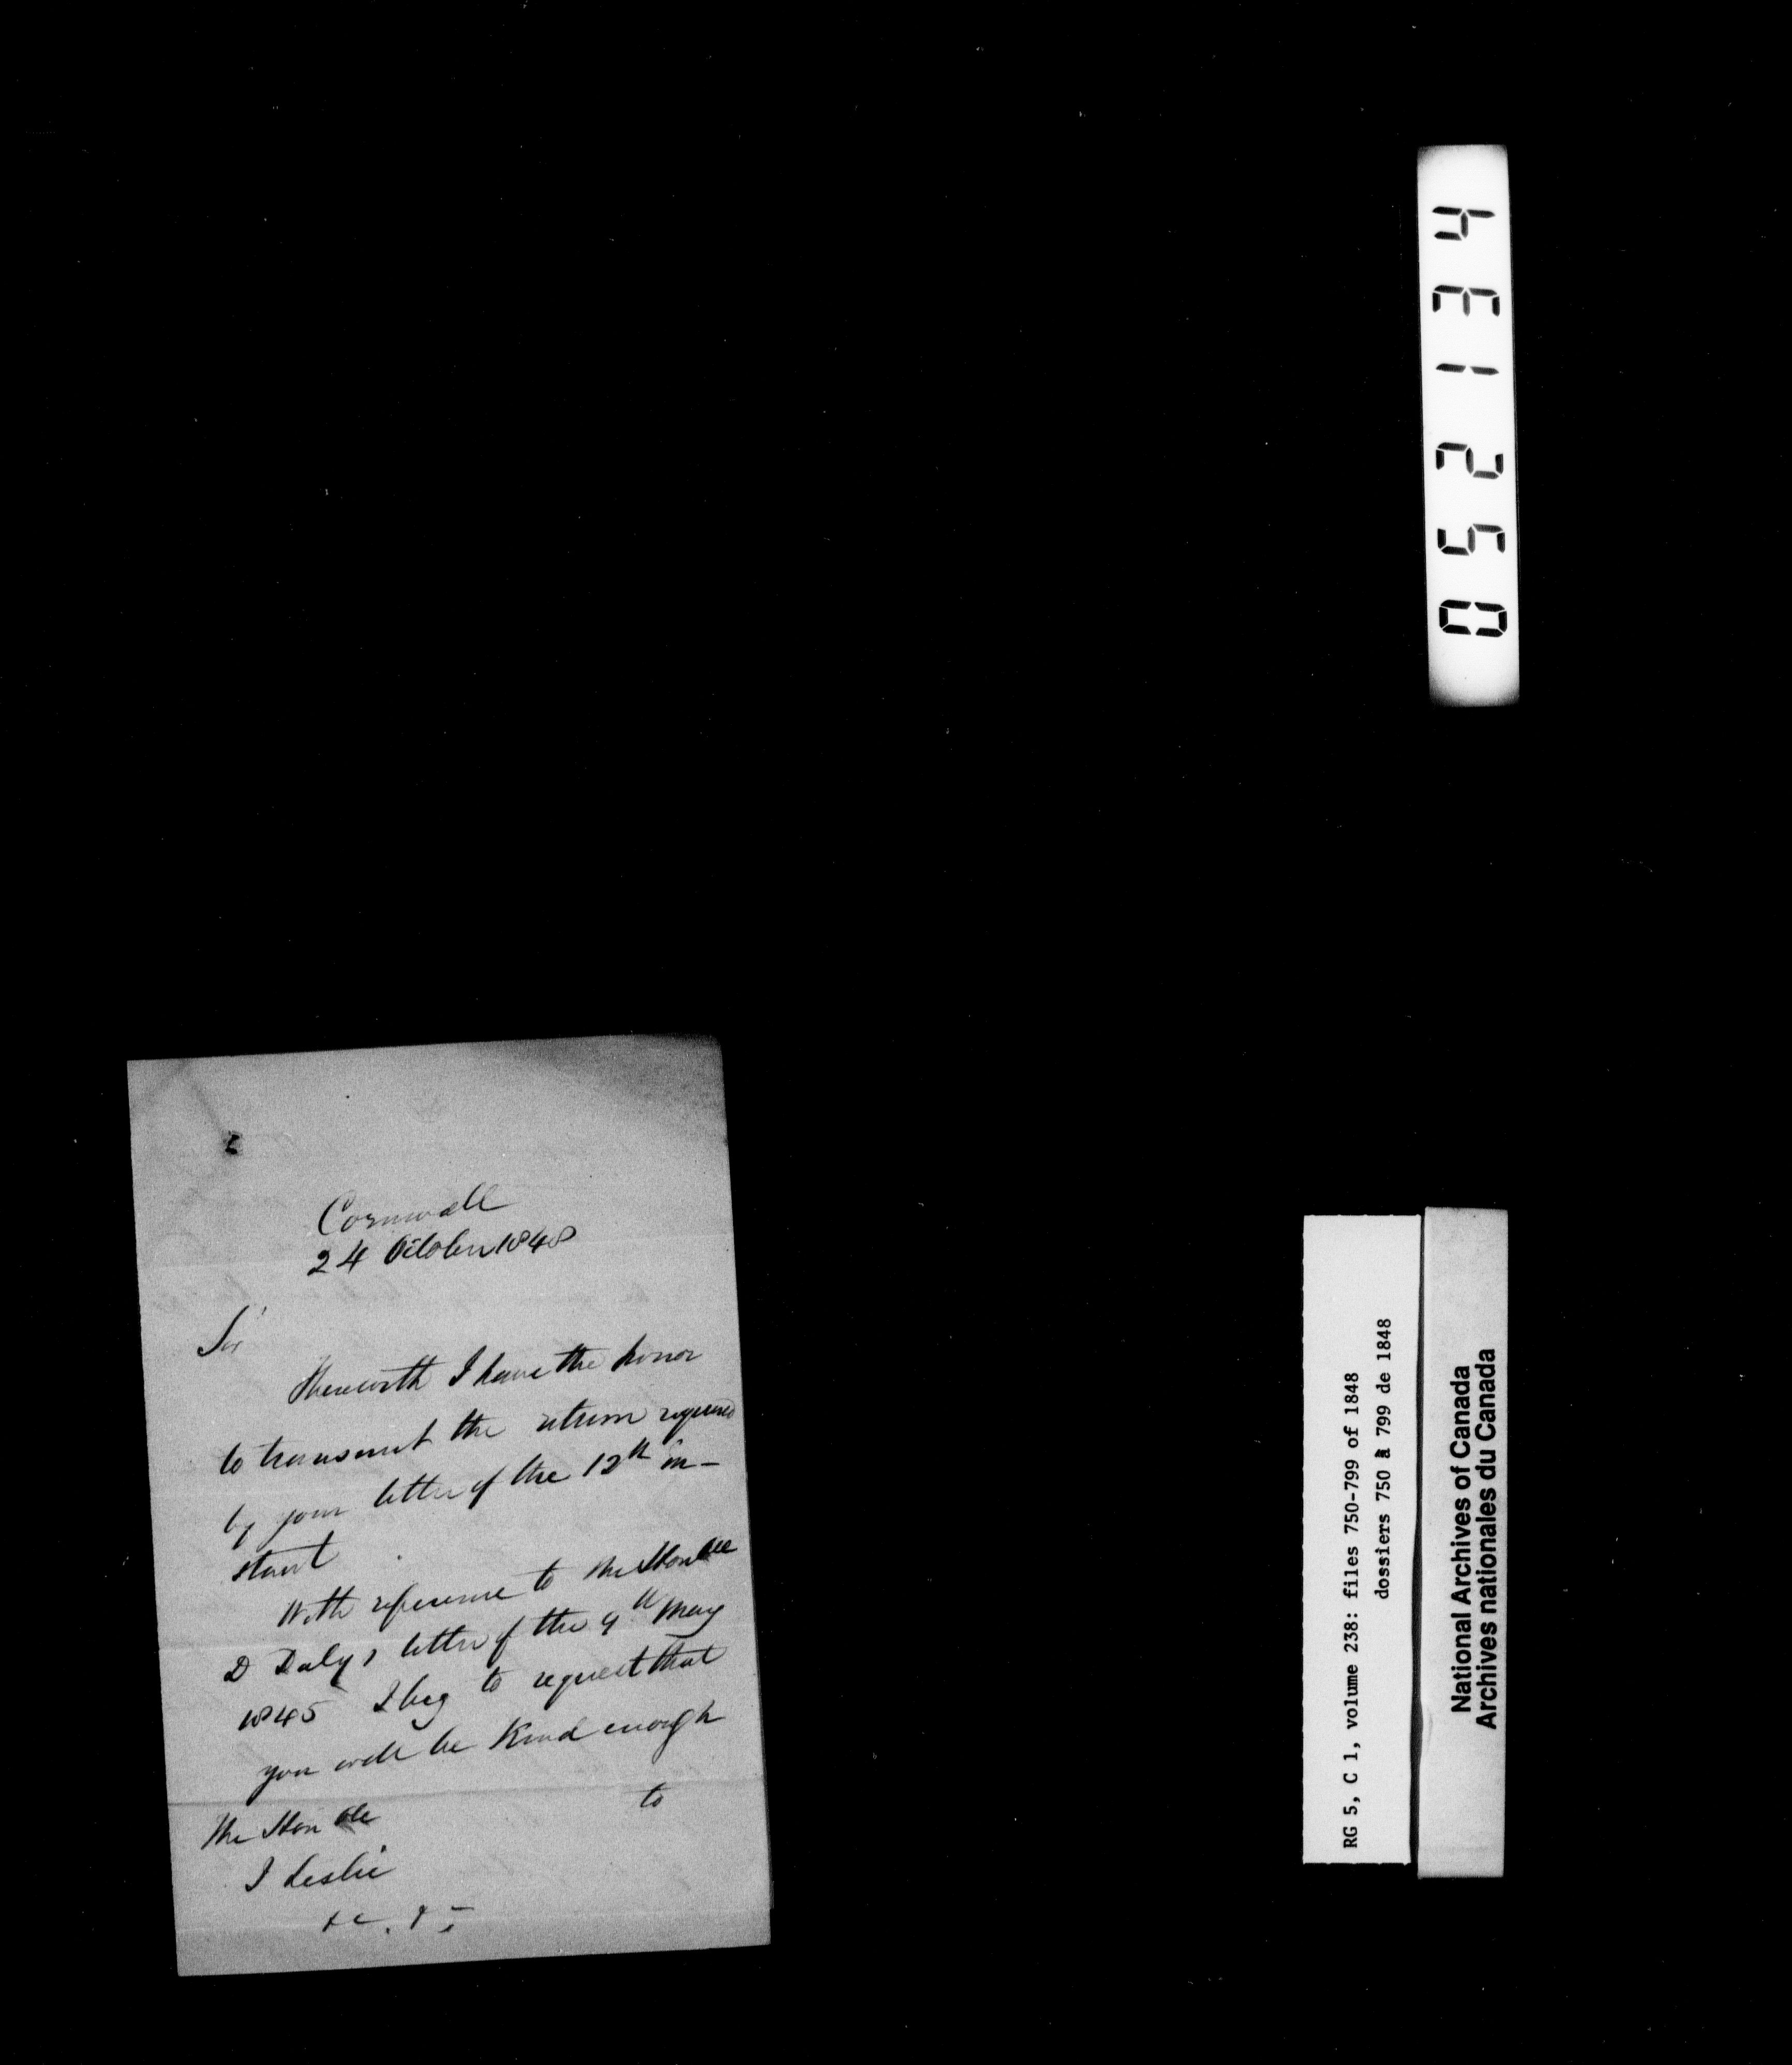 Cornwall
24 October 1848
Sir
Herewith I have the honor
to transmit the return required
by your letter of the 12th in-
stant
With reference to the Honble
D Daly's letter of the 9th May
1845 I beg to request that
you will be kind enough
to
The Honble
J Leslie
&c. &c
052134
RG 5, C 1, volume 238: files 750-799 of 1848
dossiers 750 à 799 de 1848
National Archives of Canada
Archives nationales du Canada